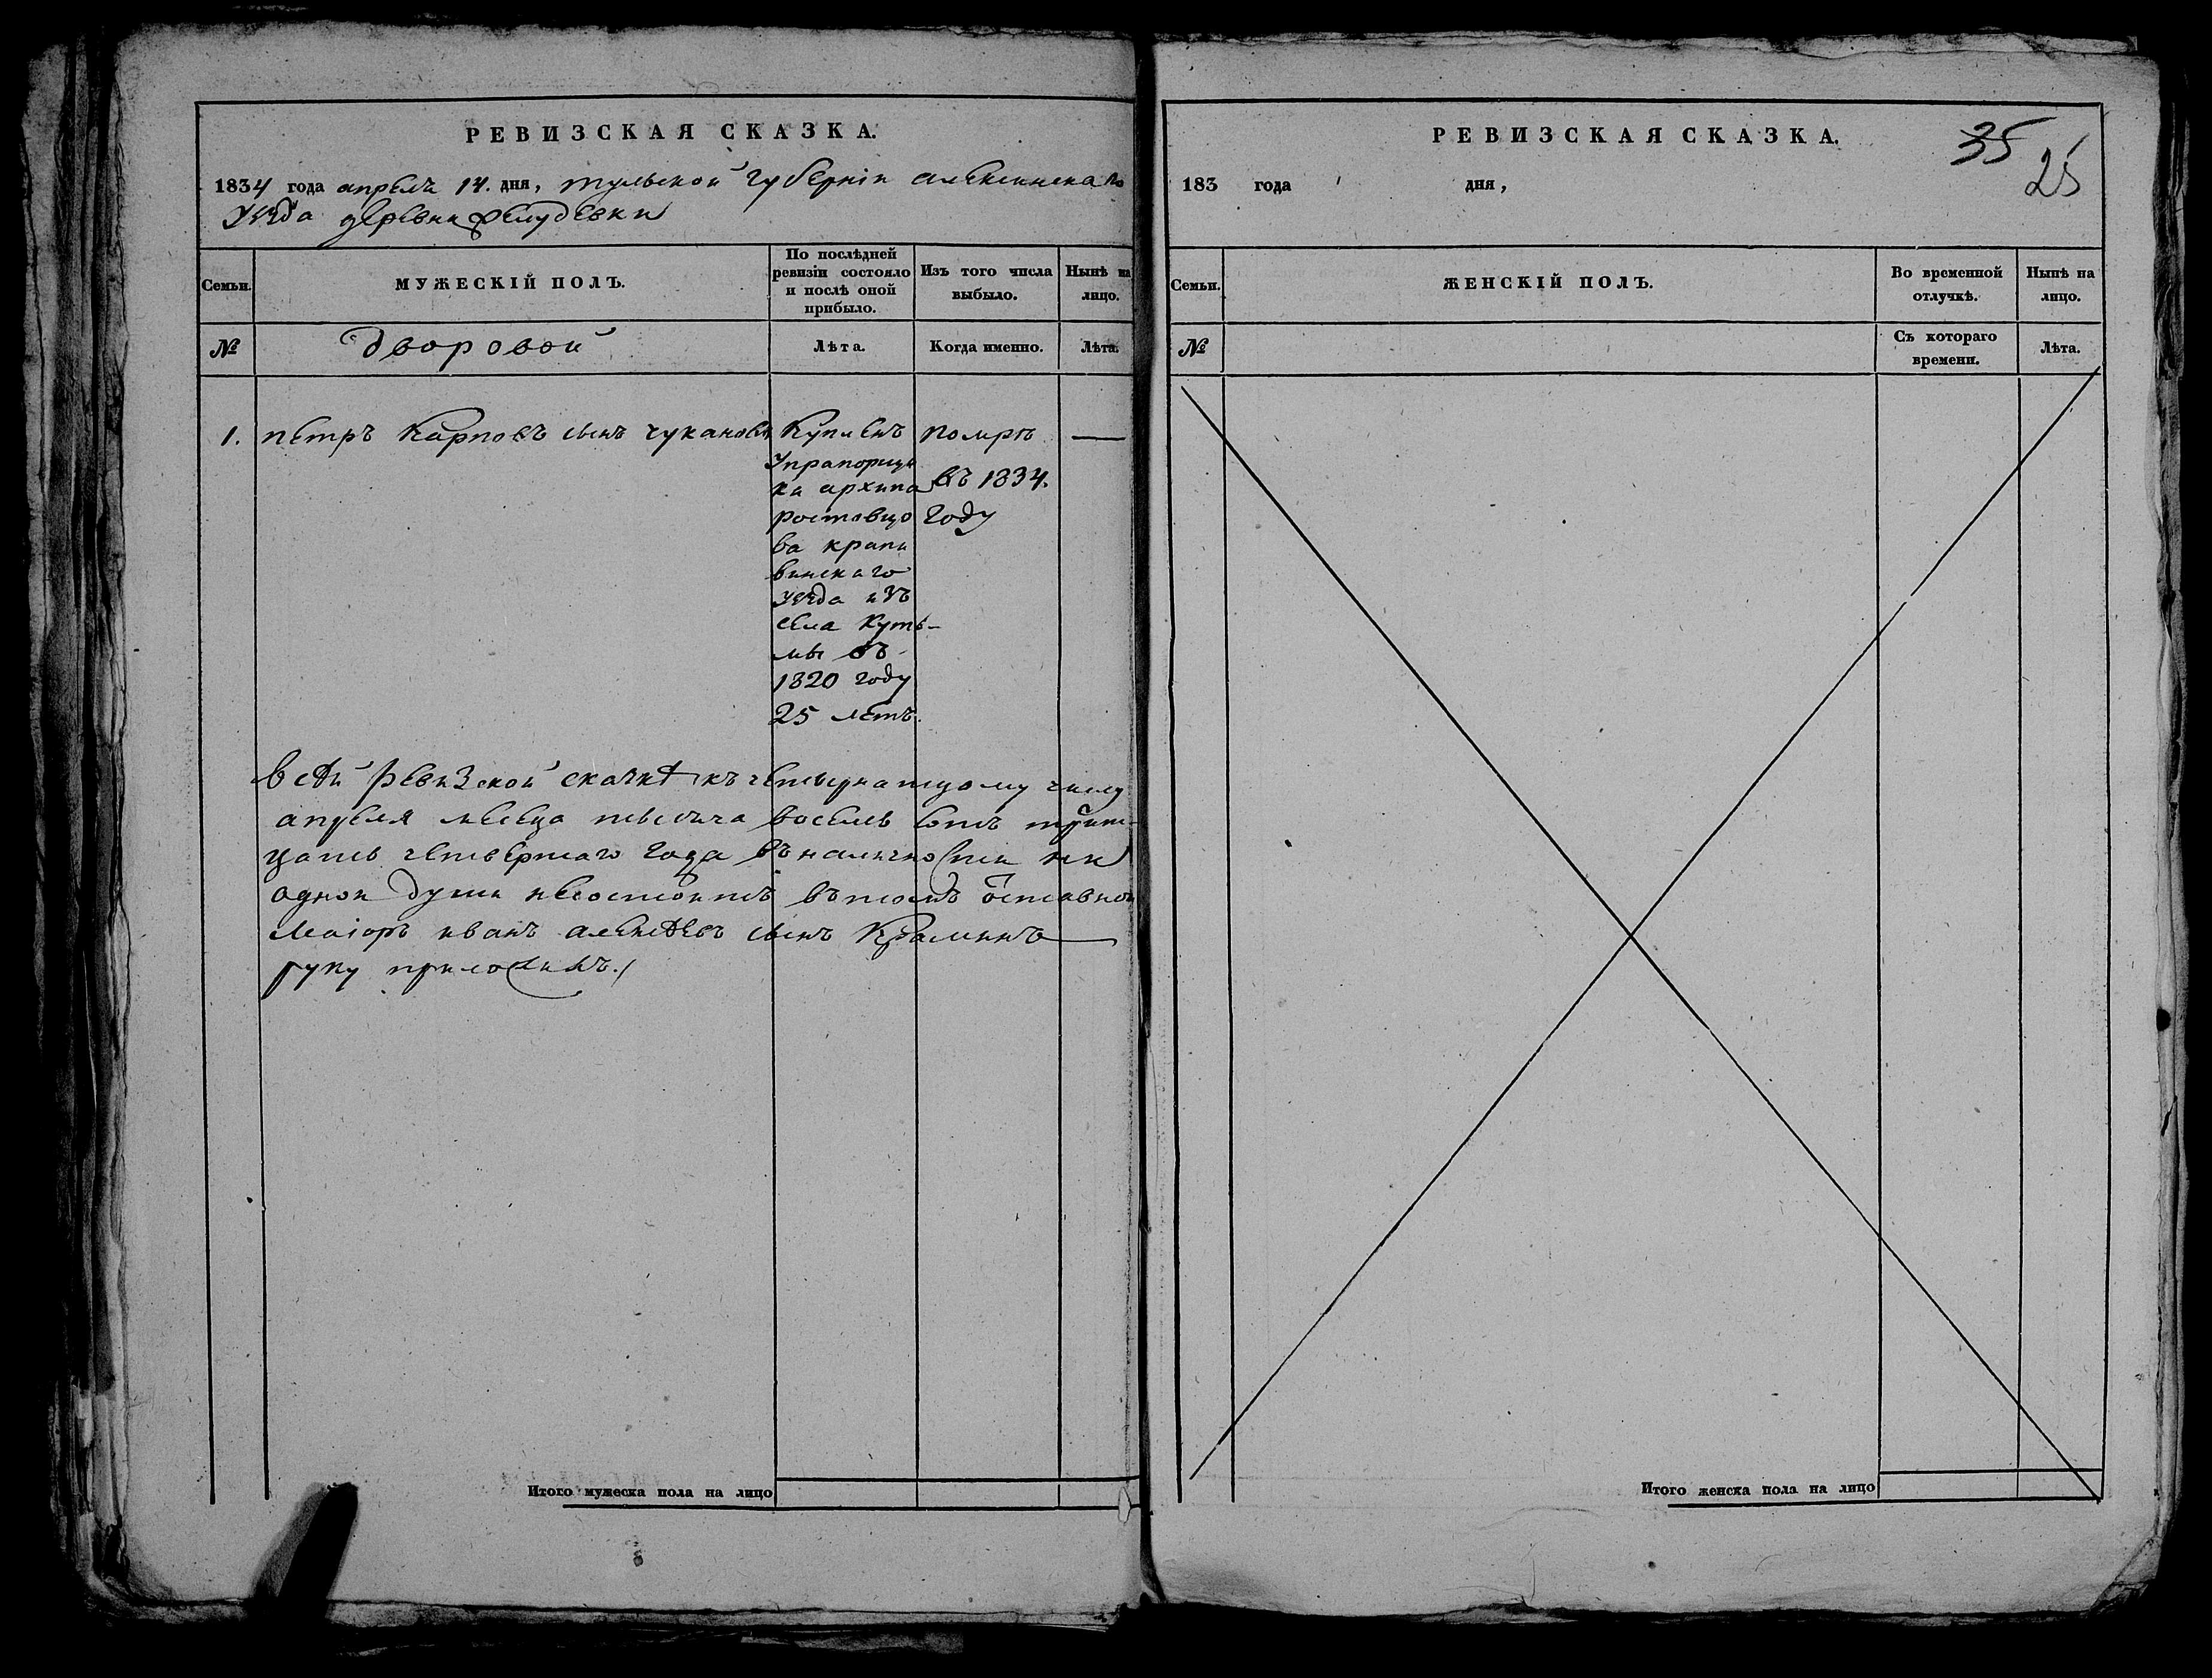 РЕВИЗСКАЯ СКАЗКА.
1834 года апреля 14. дня, тульской губерніи алексинскаго
уезда деревни
Семьи.
МУЖЕСКІЙ ПОЛЪ.
По послѣдней ревизіи состояло и послѣ оной прибыло.
Изъ того числа выбыло.
Нынѣ на лицо.
№
дворовой
Лѣта.
Когда именно.
Лѣта.
1. петръ Карповъ сынъ чукановъ
Купленъ
Упрапорщи
ка архипа
ростовцо
ва крапи
винскаго
уезда изъ
села Куть-
мы въ
1820 году
25 летъ.
помръ
въ 1834.
году
—
всей ревизской сказкѣ къ четырнатцому числу
апреля месеца тысеча восемь сотъ трит-
цать четвертаго года въ наличности ни
одной души несостоитъ въ томъ отставной
маіоръ иванъ алексѣевъ сынъ
руку приложилъ./
Итого мужеска пола на лицо
РЕВИЗСКАЯ СКАЗКА.
35
25
183 года дня,
Семьи.
ЖЕНСКІЙ ПОЛЪ.
Во временной отлучкѣ.
Нынѣ на лицо.
№
Съ котораго времени.
Лѣта.
Итого женска пола на лицо